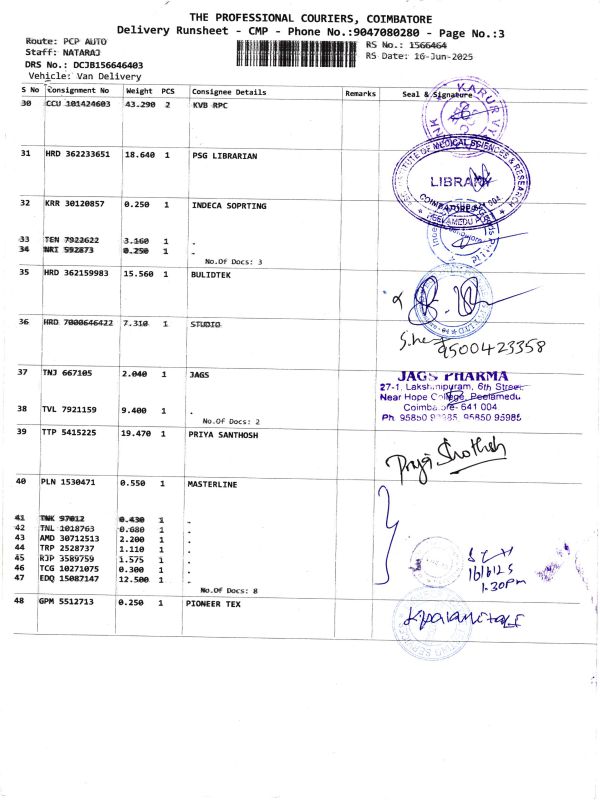 THE PROFESSIONAL COURIERS, COIMBATORE
Delivery Runsheet - CMP - Phone No.:9047080280 - Page No.:3
Route: PCP AUTO
Staff: NATARAJ
DRS No.: DCJB156646403
Vehicle: Van Delivery
RS No.: 1566464
RS Date: 16-Jun-2025
S No Consignment No Weight PCS Consignee Details Remarks Seal & Signature
30 CCU 101424603 43.290 2 KVB RPC
KARUR VY
31 HRD 362233651 18.640 1 PSG LIBRARIAN
INSTITUTE OF MEDICAL SCIENCES & RESEARCH
LIBRARY
COIMBATORE-641 004
PEELAMEDU
32 KRR 30120857 0.250 1 INDECA SOPRTING
33 TEN 7922622 3.160 1 .
34 NRI 592873 0.250 1 .
No.Of Docs: 3
35 HRD 362159983 15.560 1 BULIDTEK
36 HRD 7000646422 7.310 1 STUDIO
9500423358
37 TNJ 667105 2.040 1 JAGS
JAGS PHARMA
27-1, Lakshmipuram, 6th Street
Near Hope College, Peelamedu
Coimbatore- 641 004
Ph. 95850 95985, 95850 95985
38 TVL 7921159 9.400 1 .
No.Of Docs: 2
39 TTP 5415225 19.470 1 PRIYA SANTHOSH
Priya Santhosh
40 PLN 1530471 0.550 1 MASTERLINE
41 TNK 97012 0.430 1 .
42 TNL 1018763 0.680 1 .
43 AMD 30712513 2.200 1 .
44 TRP 2528737 1.110 1 .
45 RJP 3589759 1.575 1 .
46 TCG 10271075 0.300 1 .
47 EDQ 15087147 12.500 1 .
No.Of Docs: 8
16/6/25
1.30pm
48 GPM 5512713 0.250 1 PIONEER TEX